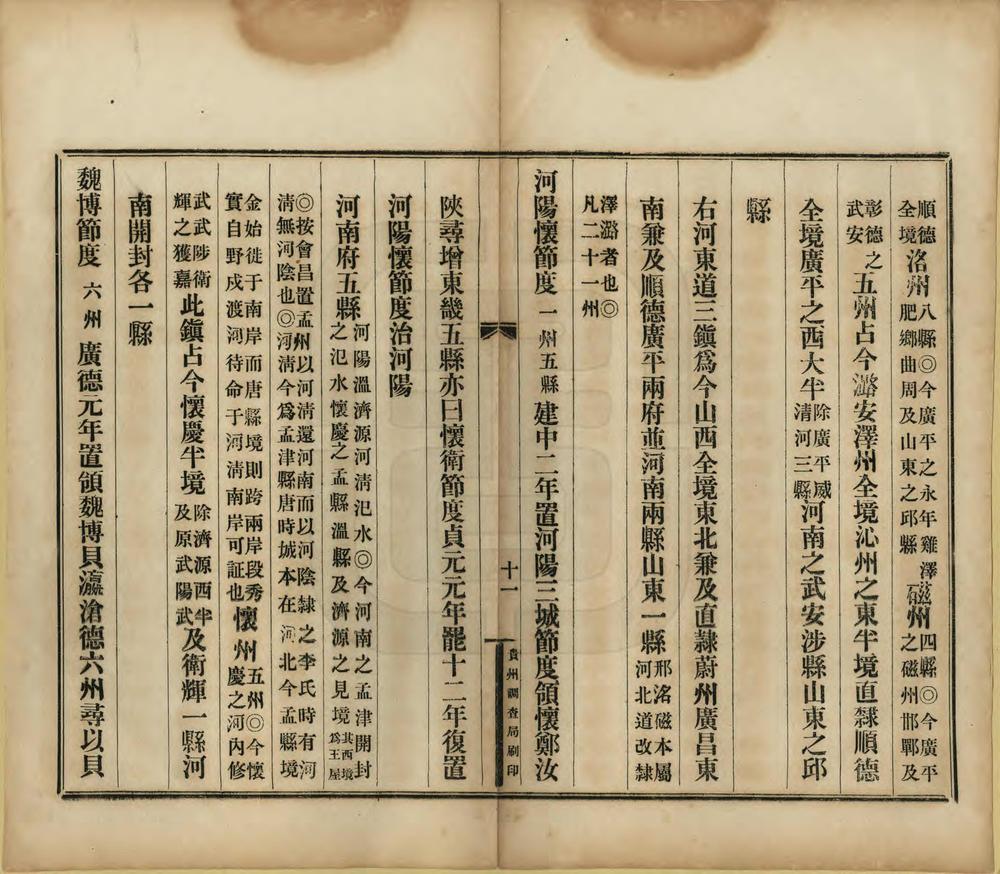 順德全境洺州八縣◎今廣平之永年雞澤肥鄉曲周及山東之邱縣磁州四縣◎今廣平之磁州邯鄲及
彰德之武安五州占今潞安澤州全境沁州之東半境直隸順德
全境廣平之西大半除廣平威清河三縣河南之武安涉縣山東之邱
縣
右河東道三鎭爲今山西全境東北兼及直隸蔚州廣昌東
南兼及順德廣平兩府並河南兩縣山東一縣邢洺磁本屬河北道改隸
澤潞者也◎凡二十一州
河陽懷節度一州五縣建中二年置河陽三城節度領懷鄭汝
陝尋增東畿五縣亦曰懷衛節度貞元元年罷十二年復置
河陽懷節度治河陽
河南府五縣河陽溫濟源河淸氾水◎今河南之孟津開封之氾水懷慶之孟縣溫縣及濟源之見境其西境爲王屋
◎按會昌置孟州以河淸還河南而以河陰隸之李氏時有河淸無河陰也◎河淸今爲孟津縣唐時城本在河北今孟縣境
金始徙于南岸而唐縣境則跨兩岸段秀實自野戍渡河待命于河淸南岸可証也懷州五州◎今懷慶之河內修
武武陟衛輝之獲嘉此鎭占今懷慶半境除濟源西半及原武陽武及衛輝一縣河
南開封各一縣
魏博節度六州廣德元年置領魏博貝瀛滄德六州尋以貝
十一
貴州調查局刷印